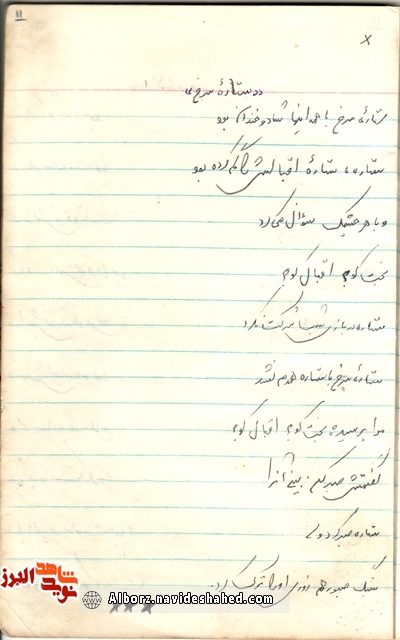 ۱۱
x
«ستارهٔ سرخ»
ستارهٔ سرخ با همه اینها شاد و خندان بود
ستاره، ستارهٔ اقبالش را گم کرده بود
و با هر چشمک سؤال می‌کرد
بخت کو؟ اقبال کو؟
ستاره در بازی شبها شرکت نکرد
ستارهٔ سرخ با ستاره همدم نشد
مرا پرسید بخت کو؟ اقبال کو؟
گفتمش صبر کن، بینی آنرا
ستاره صبر کرد ولی
سنگ صبور هم روزی او را ترک کرد.
شاهد البرز
نوید
Alborz.navideshahed.com